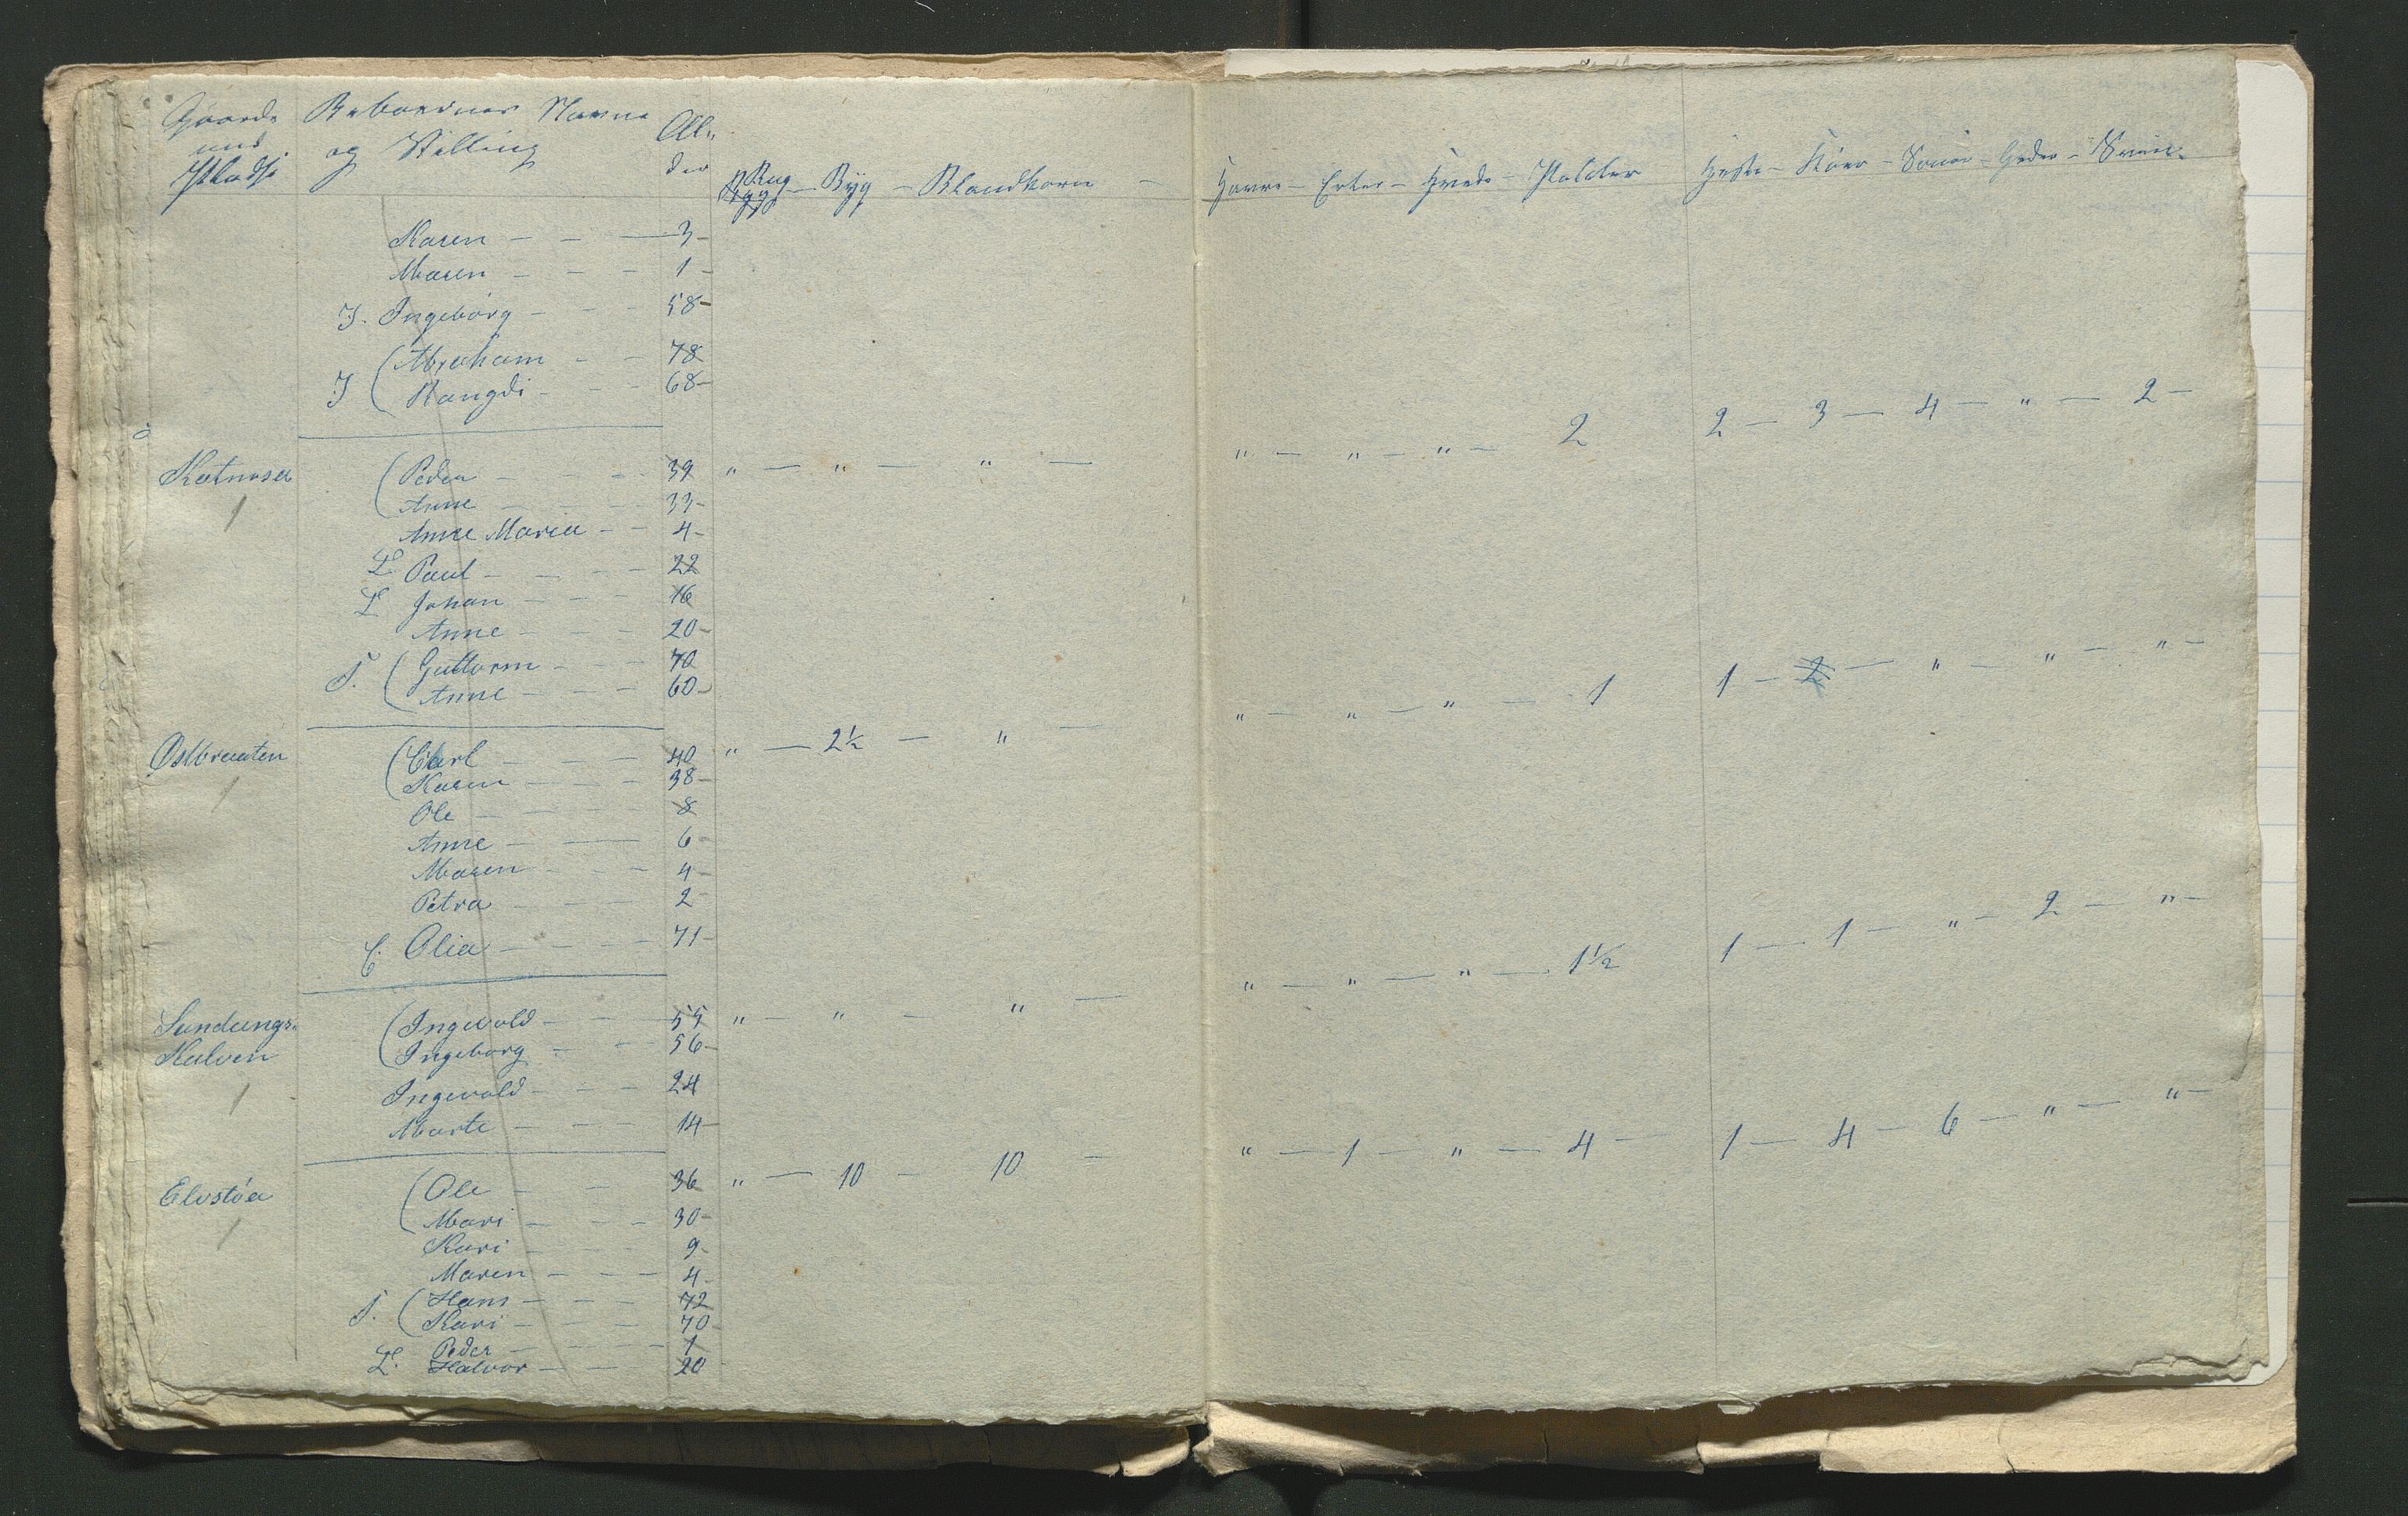 Gaarde Beboernes Navne Al-
med og Stilling der Rug – Byg – Blandkorn – Havre – Erter – Hvede – Poteter Heste – Køer – Souer – Geder – Sviin
Pladse
Karen – – – 3 –
Maren – – – 1 –
I. Ingeborg – – – 58 –
I ( Abraham – – 78
Rangdi – – – 68 –
Katnosa ( Peder – – – 39 " – " – " – " – " – " – 2 2 – 3 – 4 – " – 2 –
1 Anne – – – 33 –
Anne Maria – – 4 –
L Paul – – – 22
L Johan – – – 16
Anne – – – 20 –
F. ( Guttorm – – – 70
Anne – – – 60 –
Østbraaten ( Carl – – – 40 " – 2½ – " – " – " – " – 1 1 – 2 – " – " – " –
1 Karen – – – 38 –
Ole – – – 8
Anne – – 6 –
Maren – – – 4 –
Petra – – – 2 –
E. Olia – – – 71 –
Sandungs- ( Ingevold – – – 55 " – " – " – " – " – " – 1½ 1 – 1 – " – 2 – " –
Kalven Ingeborg – – – 56 –
1 Ingevold – – – 24
Marte – – – 14 –
Elvstøa ( Ole – – 36 " – 10 – 10 – " – 1 – " – 4 – 1 – 4 – 6 – " – " –
1 Mari – – – 30 –
Kari – – 9 –
Maren – – – 4 –
F. ( Hans – – – 72
Kari – – – 70 –
Peder – – – 1
L. Halvor – – 20